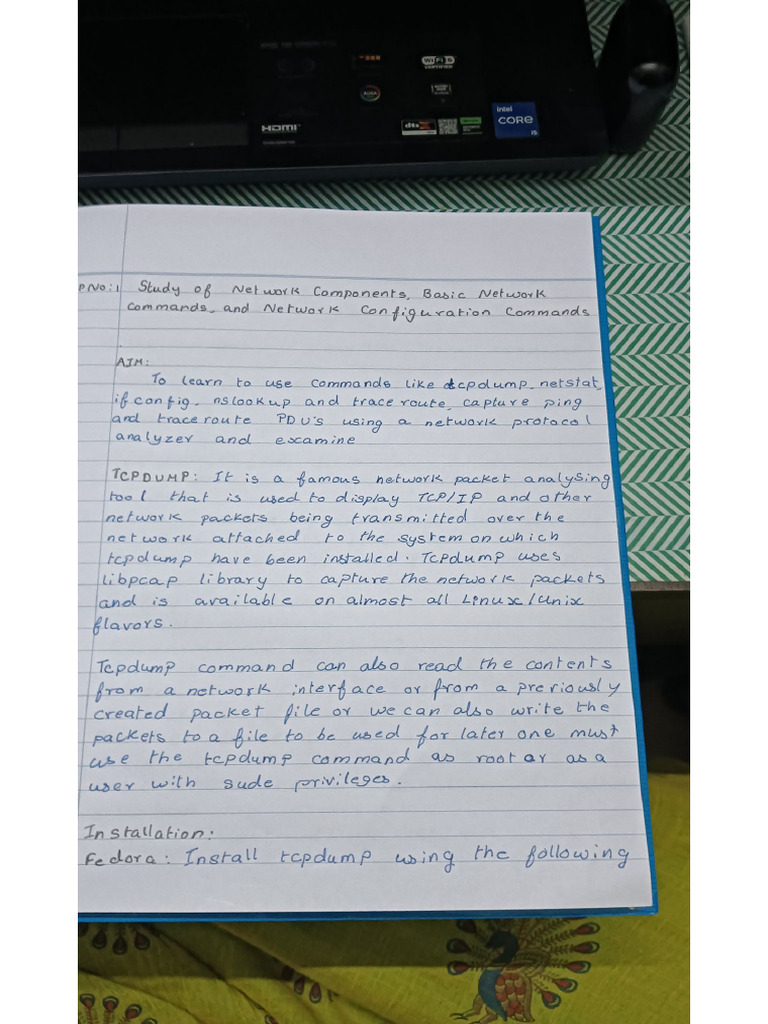 WiFi 6
CERTIFIED
AURA
HDMI
dts X
intel
CORE
i5
P NO:1 Study of Network Components, Basic Network
Commands, and Network Configuration Commands
AIM:
To learn to use commands like tcpdump, netstat,
ifconfig, nslookup and traceroute, capture ping
and traceroute PDU's using a network protocol
analyzer and examine
TCPDUMP: It is a famous network packet analysing
tool that is used to display TCP/IP and other
network packets being transmitted over the
network attached to the system on which
tcpdump have been installed. Tcpdump uses
libpcap library to capture the network packets
and is available on almost all Linux/Unix
flavors.
Tcpdump command can also read the contents
from a network interface or from a previously
created packet file or we can also write the
packets to a file to be used for later one must
use the tcpdump command as root or as a
user with sude privileges.
Installation:
Fedora: Install tcpdump using the following